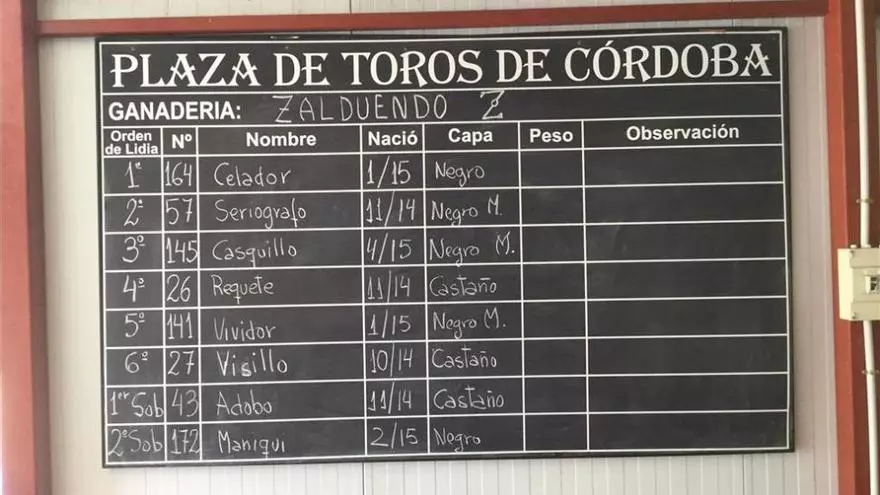 PLAZA DE TOROS DE CÓRDOBA
GANADERIA: ZALDUENDO Z
Orden de Lidia Nº Nombre Nació Capa Peso Observación
1º 164 Celador 1/15 Negro
2º 57 Seriografo 11/14 Negro M.
3º 145 Casquillo 4/15 Negro M.
4º 26 Requete 11/14 Castaño
5º 141 Vividor 1/15 Negro M.
6º 27 Visillo 10/14 Castaño
1er Sob 43 Adobo 11/14 Castaño
2º Sob 172 Maniqui 2/15 Negro